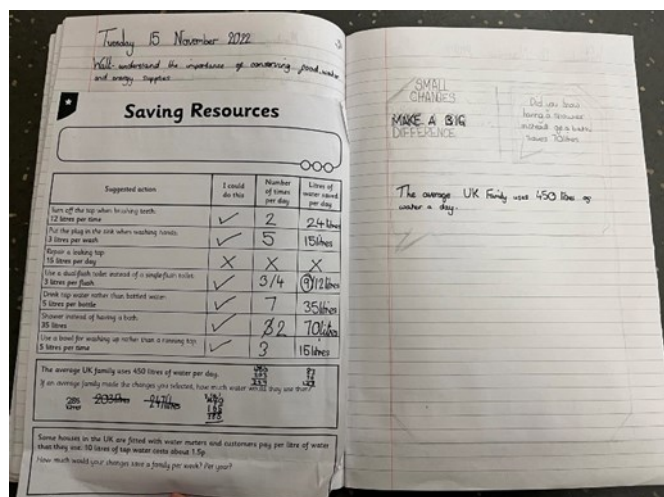 Tuesday 15 November 2022
Walt- understand the importance of conserving food, water
and energy supplies
Saving Resources
Suggested action
I could do this
Number of times per day
Litres of water saved per day
Turn off the tap when brushing teeth:
12 litres per time
2
24 litres
Put the plug in the sink when washing hands:
3 litres per wash
5
15 litres
Repair a leaking tap:
15 litres per day
X X X
Use a dual-flush toilet instead of a single-flush toilet:
3 litres per flush
3/4
9/12 litres
Drink tap water rather than bottled water:
5 litres per bottle
7
35 litres
Shower instead of having a bath:
35 litres
2
70 litres
Use a bowl for washing up rather than a running tap:
5 litres per time
3
15 litres
The average UK family uses 450 litres of water per day.
If an average family made the changes you selected, how much water would they use then?
Some houses in the UK are fitted with water meters and customers pay per litre of water
that they use. 10 litres of tap water costs about 1.5p.
How much would your changes save a family per week? Per year?
SMALL
CHANGES
MAKE A BIG
DIFFERENCE
Did you know
having a shower
instead of a bath
saves 70 litres
The average UK Family uses 450 litres of
water a day.